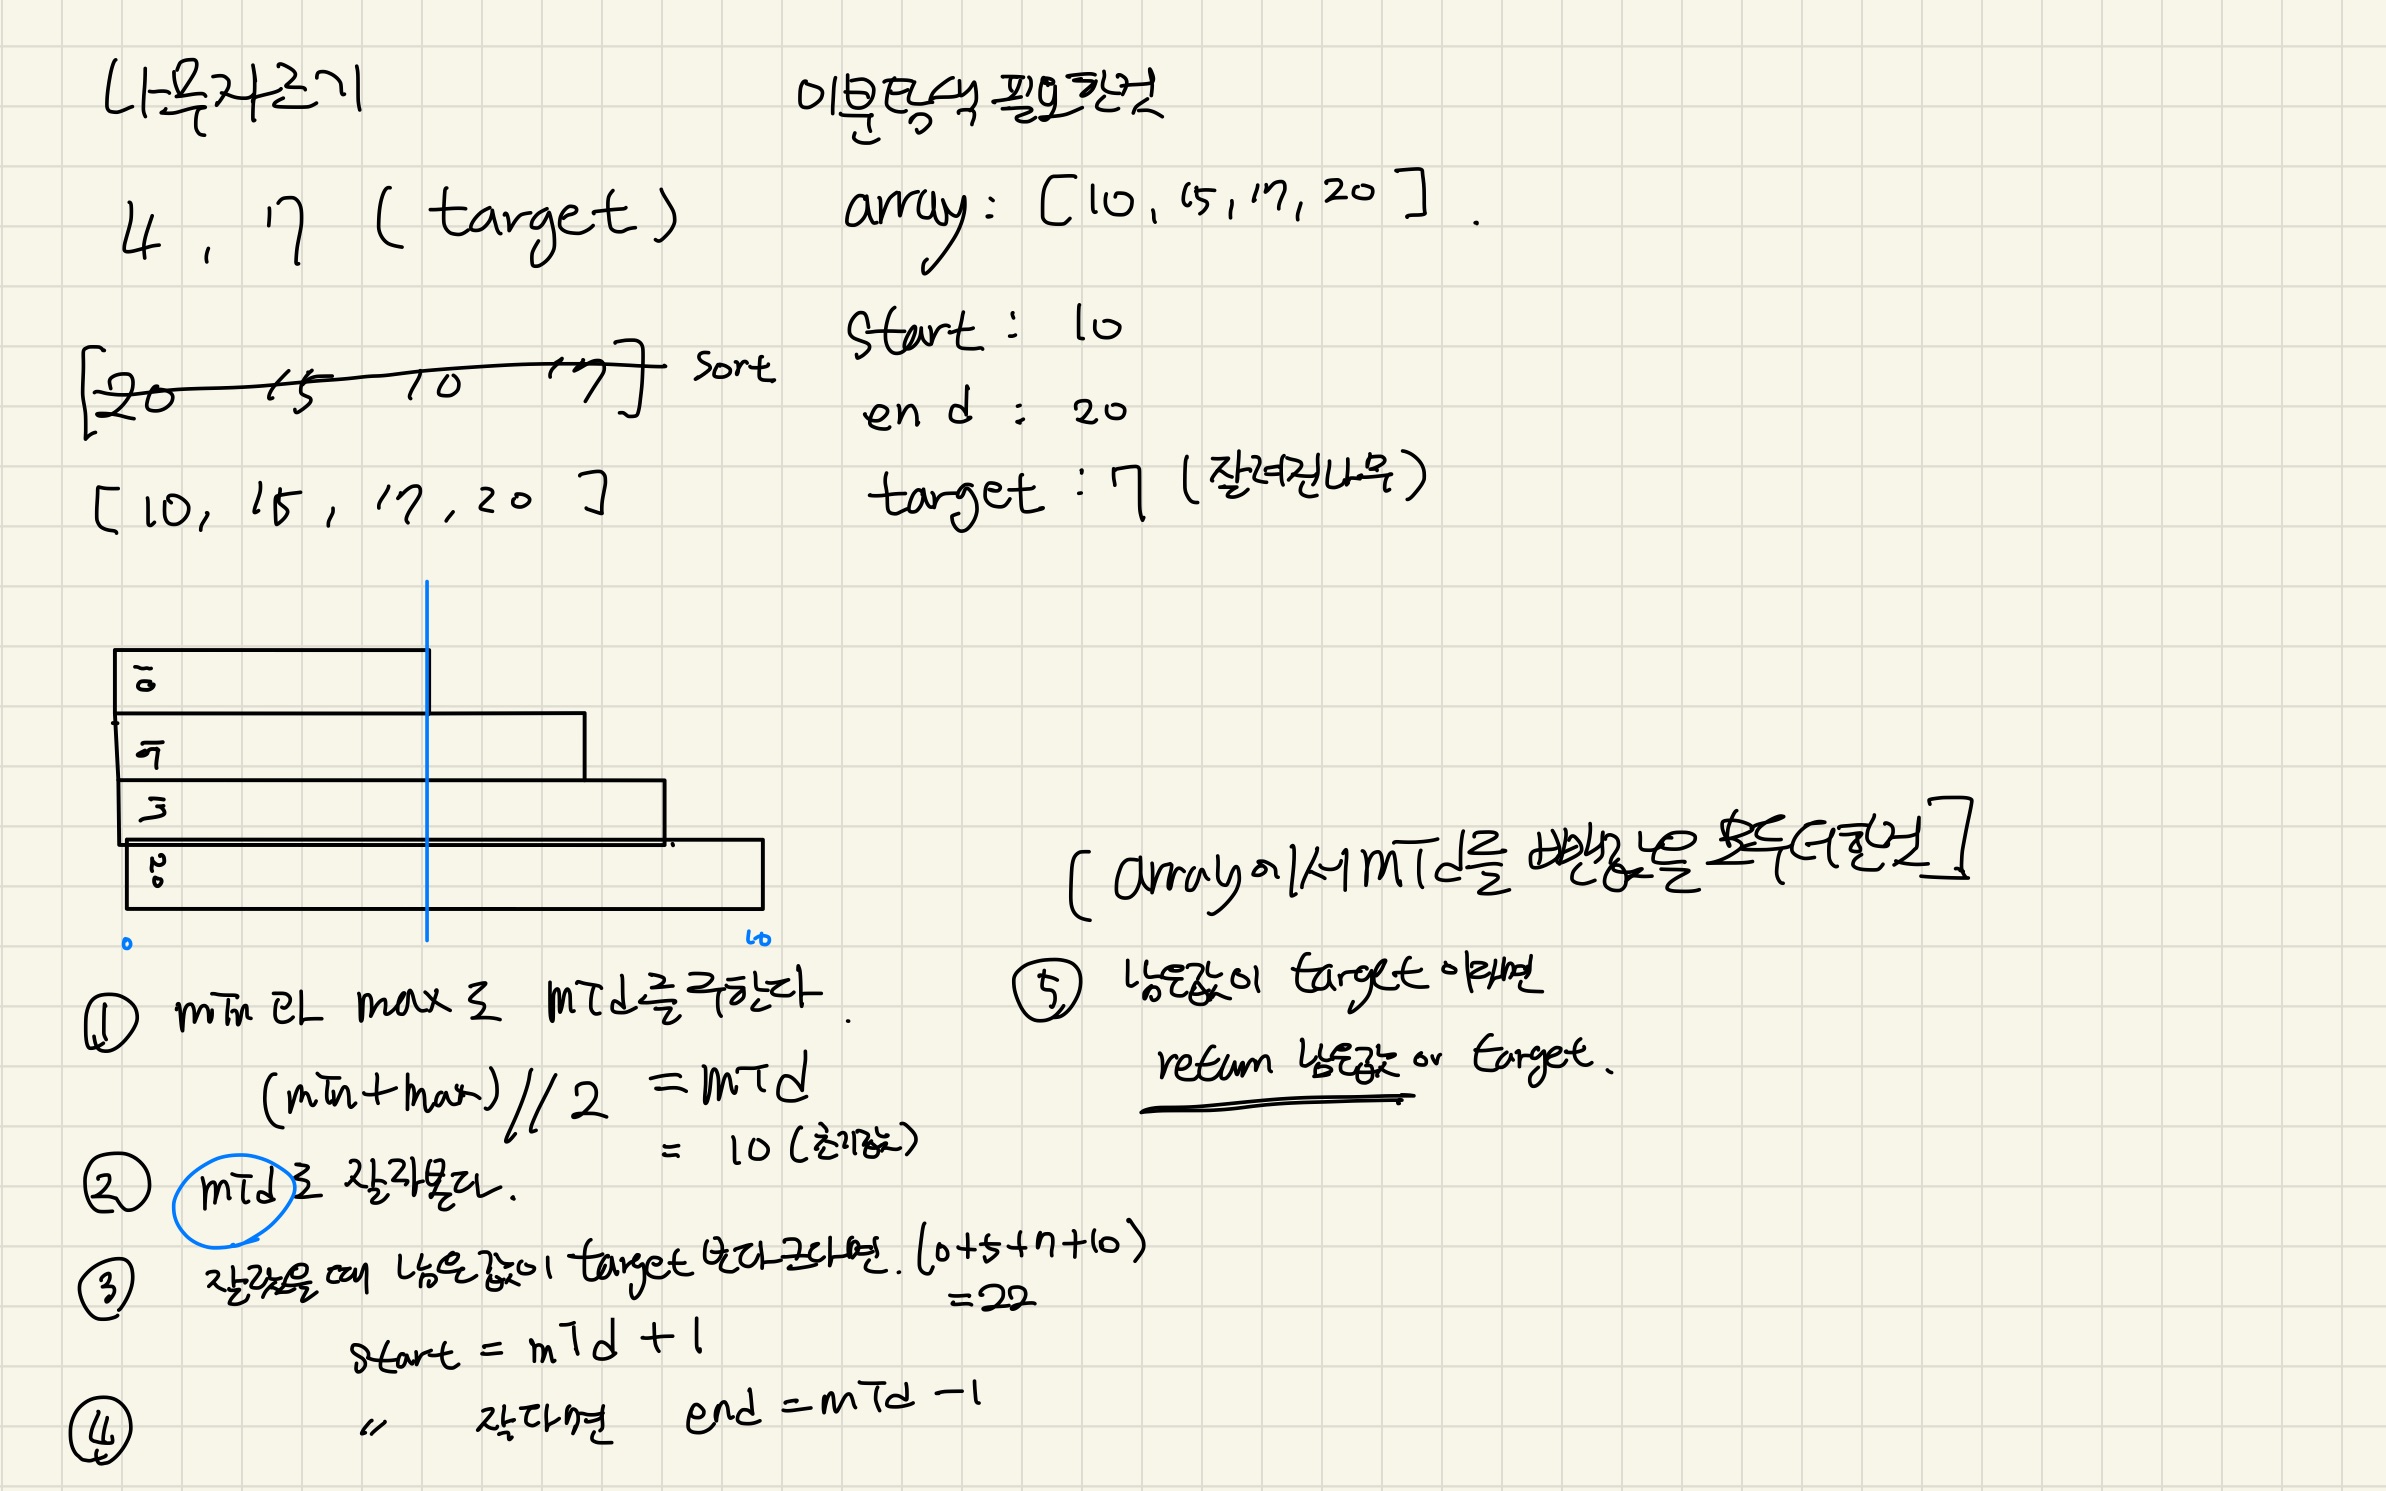 나무자르기
4, 7 (target)
[20 15 10 17] sort
[10, 15, 17, 20]
이분탐색 필요한것
array: [10, 15, 17, 20].
start: 10
end: 20
target: 7 (잘려진나무)
10
15
17
20
0
① min 과 max로 mid를 구한다.
(min+max)//2 = mid
= 10 (초기값)
② mid로 잘라본다.
③ 잘랐을 때 남은 값이 target 보다 크다면. (0+5+7+10)
=22
start = mid + 1
④ " 작다면 end = mid -1
[array에서 mid를 뺀 값들을 모두 더한것]
⑤ 남은값이 target 이라면
return 남은값 or target.